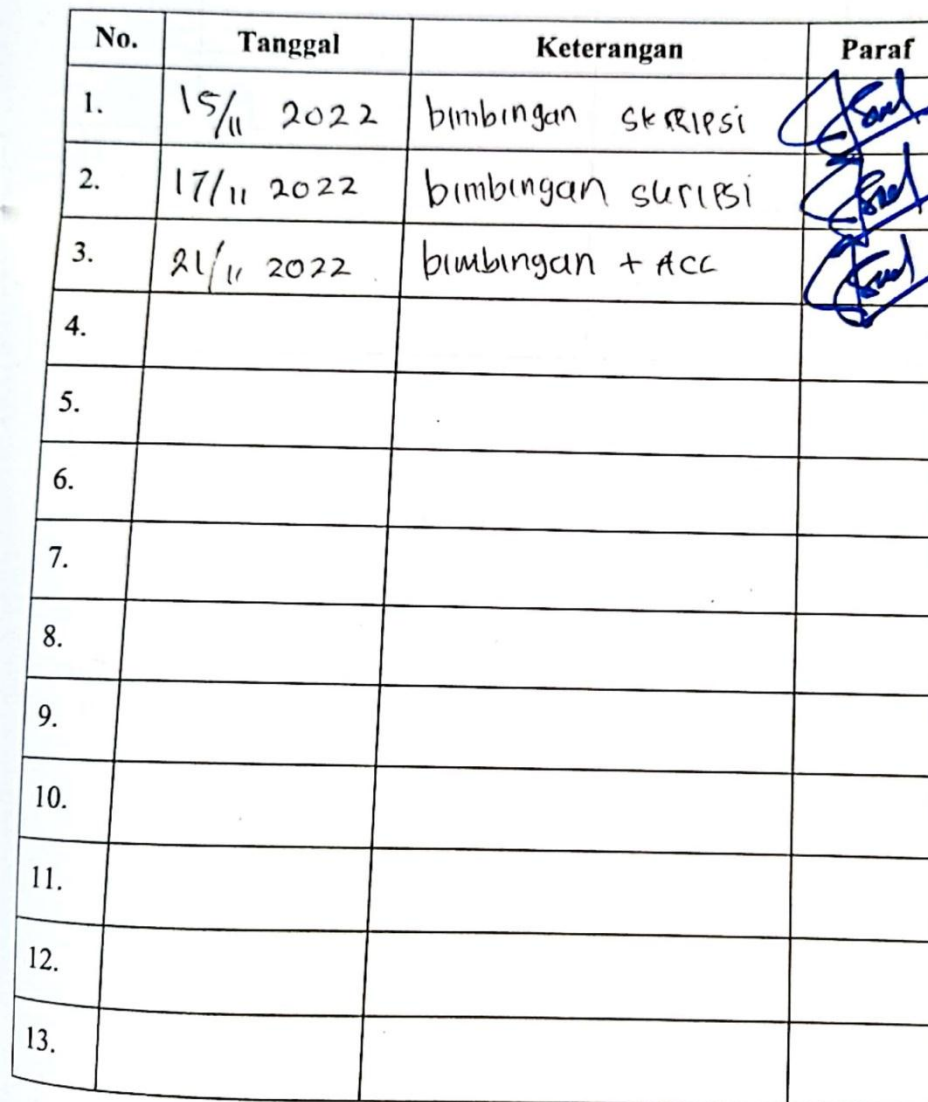 No. Tanggal Keterangan Paraf
1. 15/11 2022 bimbingan SKRIPSi
2. 17/11 2022 bimbingan skripsi
3. 21/11 2022 bimbingan + ACC
4.
5.
6.
7.
8.
9.
10.
11.
12.
13.